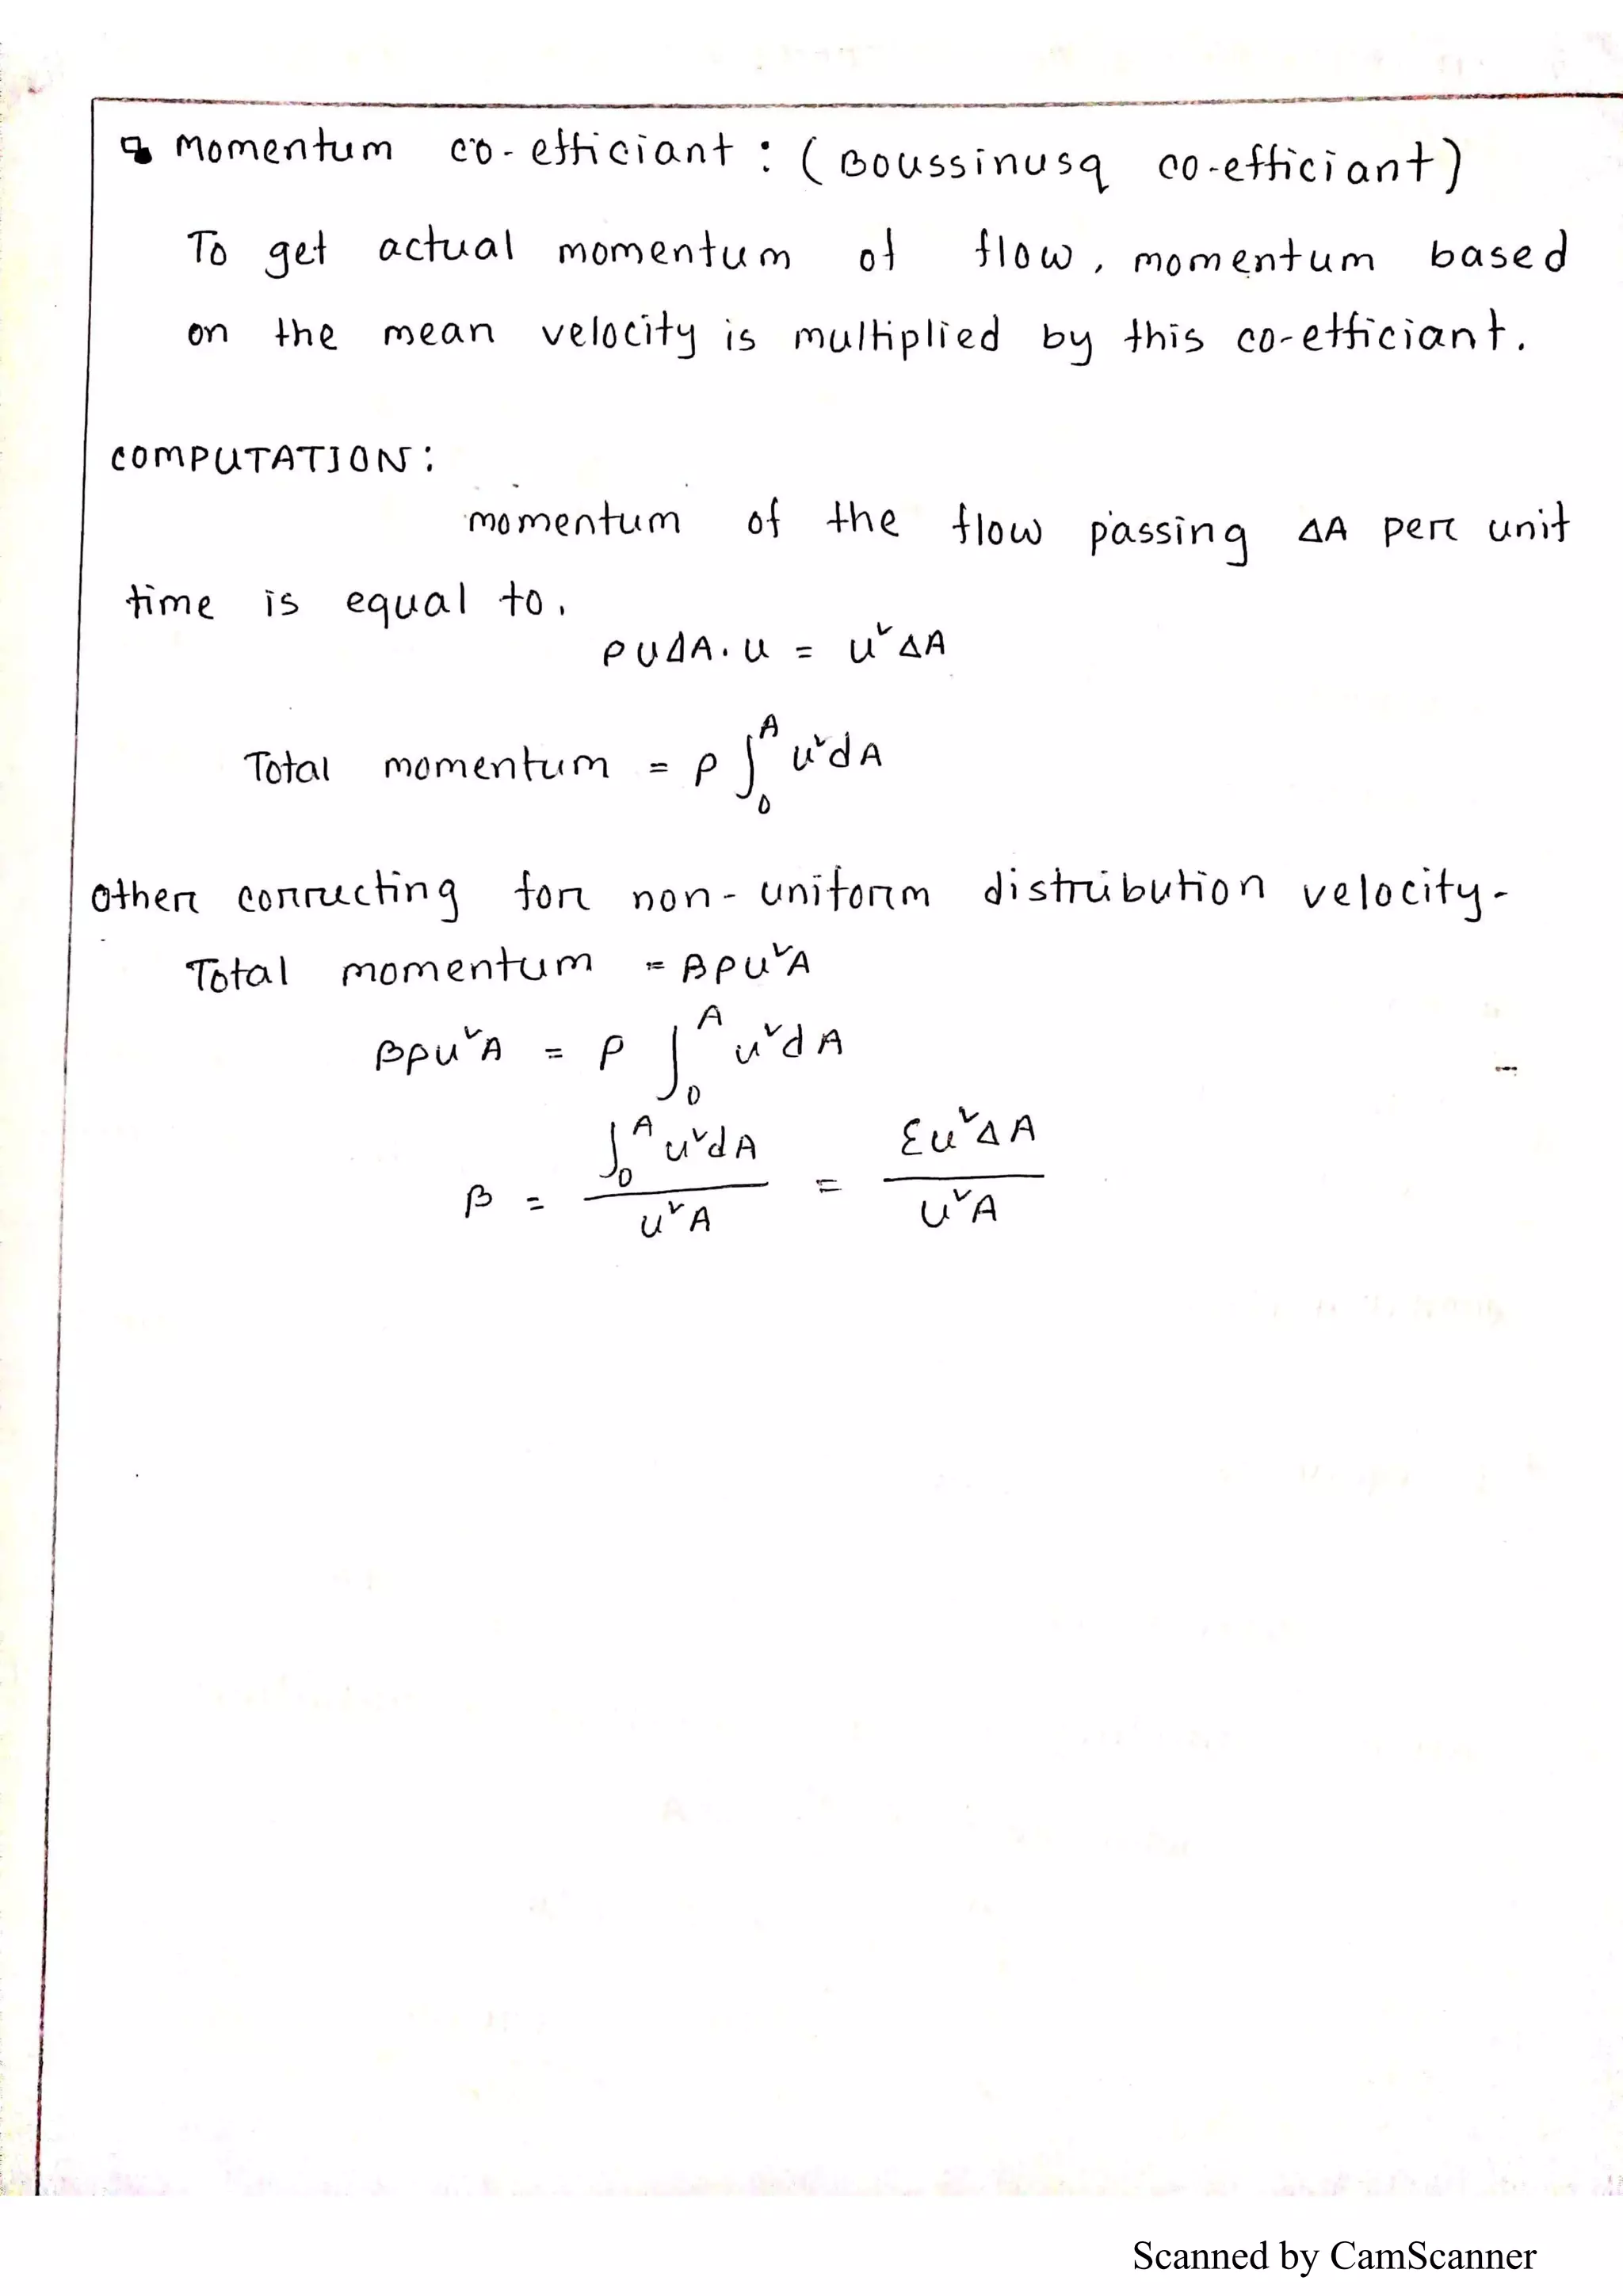 Momentum co-efficiant : (Boussinusq co-efficiant)
To get actual momentum of flow, momentum based
on the mean velocity is multiplied by this co-efficiant.
COMPUTATION:
momentum of the flow passing ΔA per unit
time is equal to,
ρUΔA.u = u²ΔA
Total momentum = ρ ∫₀ᴬ u²dA
Other correcting for non-uniform distribution velocity-
Total momentum = βρu²A
βρu²A = ρ ∫₀ᴬ u²dA
β = ∫₀ᴬ u²dA / u²A = Σu²ΔA / U²A
Scanned by CamScanner